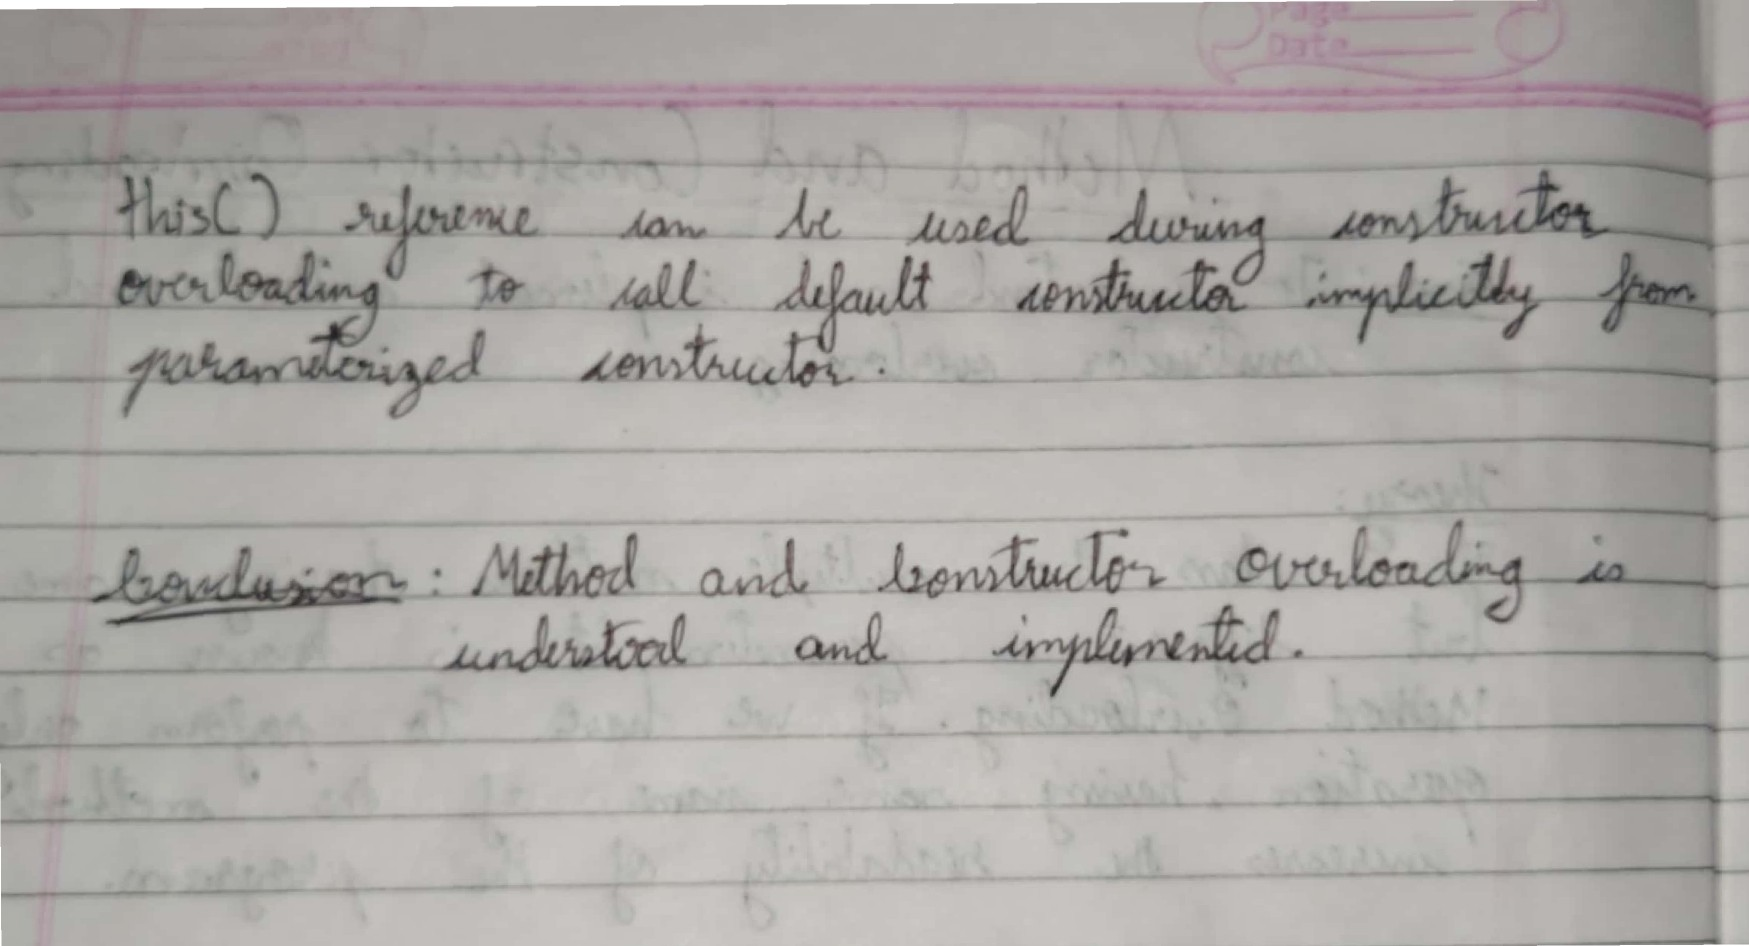 Page
Date
this() reference can be used during constructor
overloading to call default constructor implicitly from
parameterized constructor.
Conclusion: Method and Constructor overloading is
understood and implemented.